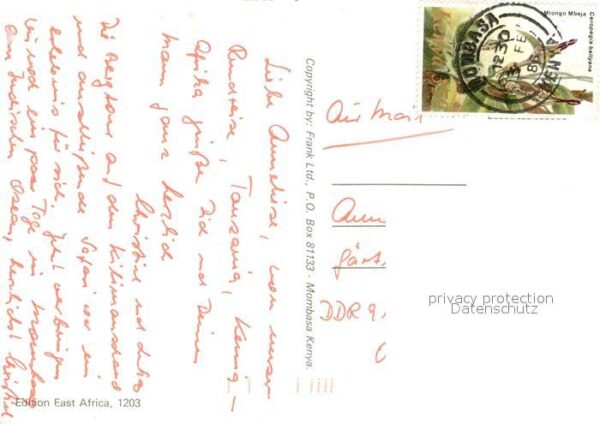 Liebe Anneliese, von unser
Rundreise, Tansania, Kenia –
Afrika grüßen Dich und Deinen
Mann ganz herzlich
Christine und
Die Bergtour auf den Kilimanscharo
und anschließende Safari war ein
Erlebnis für sich, jetzt verbringen
wir noch ein paar Tage in Mombasa
am Indischen Ozean, herzlichst Christine
Copyright by: Frank Ltd., P.O. Box 81133 - Mombasa Kenya.
Edition East Africa, 1203
Air Mail
DDR 9.
privacy protection
Datenschutz
MOMBASA
KENYA
1230
86
Mtongo Mbeja
Ceropegia ballyana